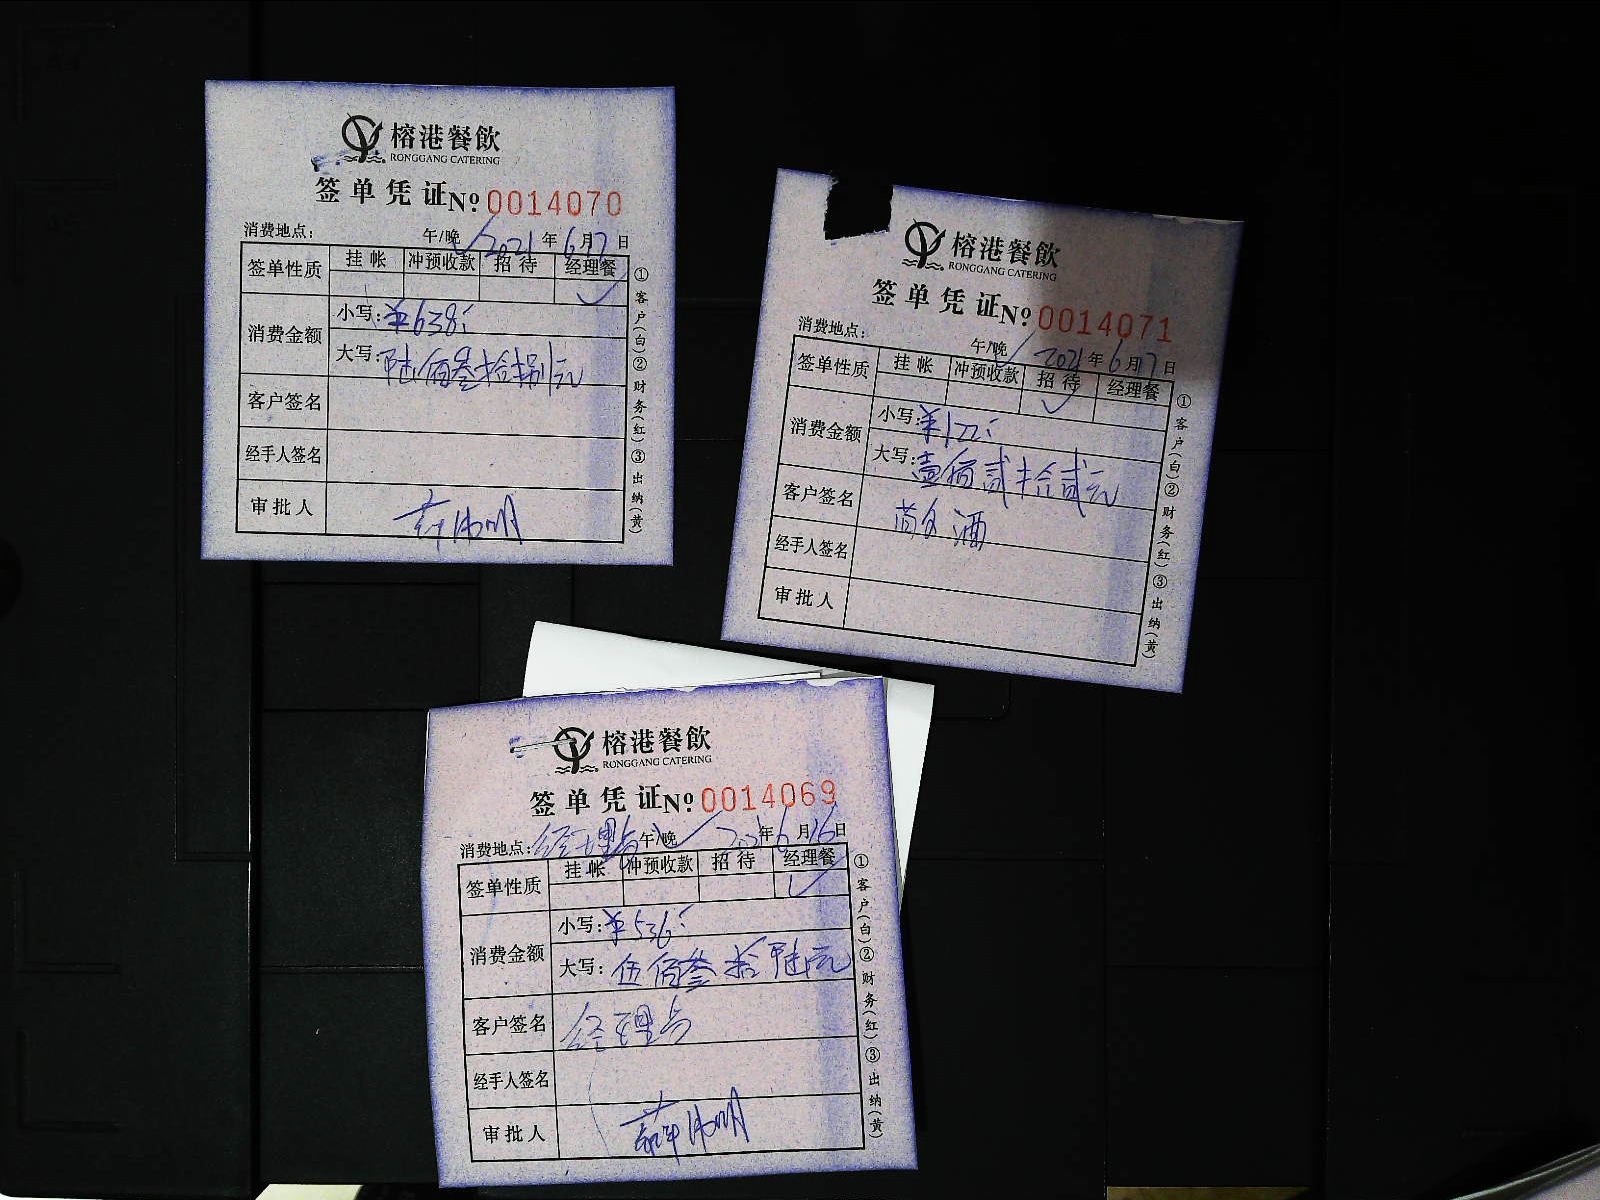 榕港餐飲
RONGGANG CATERING
签单凭证 Nº 0014070
消费地点: 午/晚 ✓ 2021年6月17日
签单性质 挂帐 冲预收款 招待 经理餐
✓
消费金额 小写: ¥638
大写: 陆佰叁拾捌元
客户签名
经手人签名
审批人
①客户(白)②财务(红)③出纳(黄)
榕港餐飲
RONGGANG CATERING
签单凭证 Nº 0014071
消费地点: 午/晚 ✓ 2021年6月17日
签单性质 挂帐 冲预收款 招待 经理餐
✓
消费金额 小写: ¥122
大写: 壹佰贰拾贰元
客户签名
经手人签名
审批人
①客户(白)②财务(红)③出纳(黄)
榕港餐飲
RONGGANG CATERING
签单凭证 Nº 0014069
消费地点: 经理 午/晚 ✓ 2021年6月16日
签单性质 挂帐 冲预收款 招待 经理餐
✓
消费金额 小写: ¥536
大写: 伍佰叁拾陆元
客户签名 经理
经手人签名
审批人
①客户(白)②财务(红)③出纳(黄)